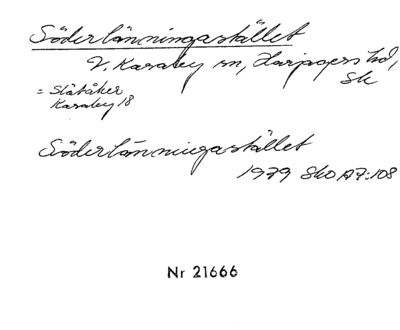 Söderlänningastället
V. Karaby sn, Harjagers hd,
Sk
= Slätåker
Karaby 18
Söderlänningastället
1979 Sko A7:108
Nr 21666